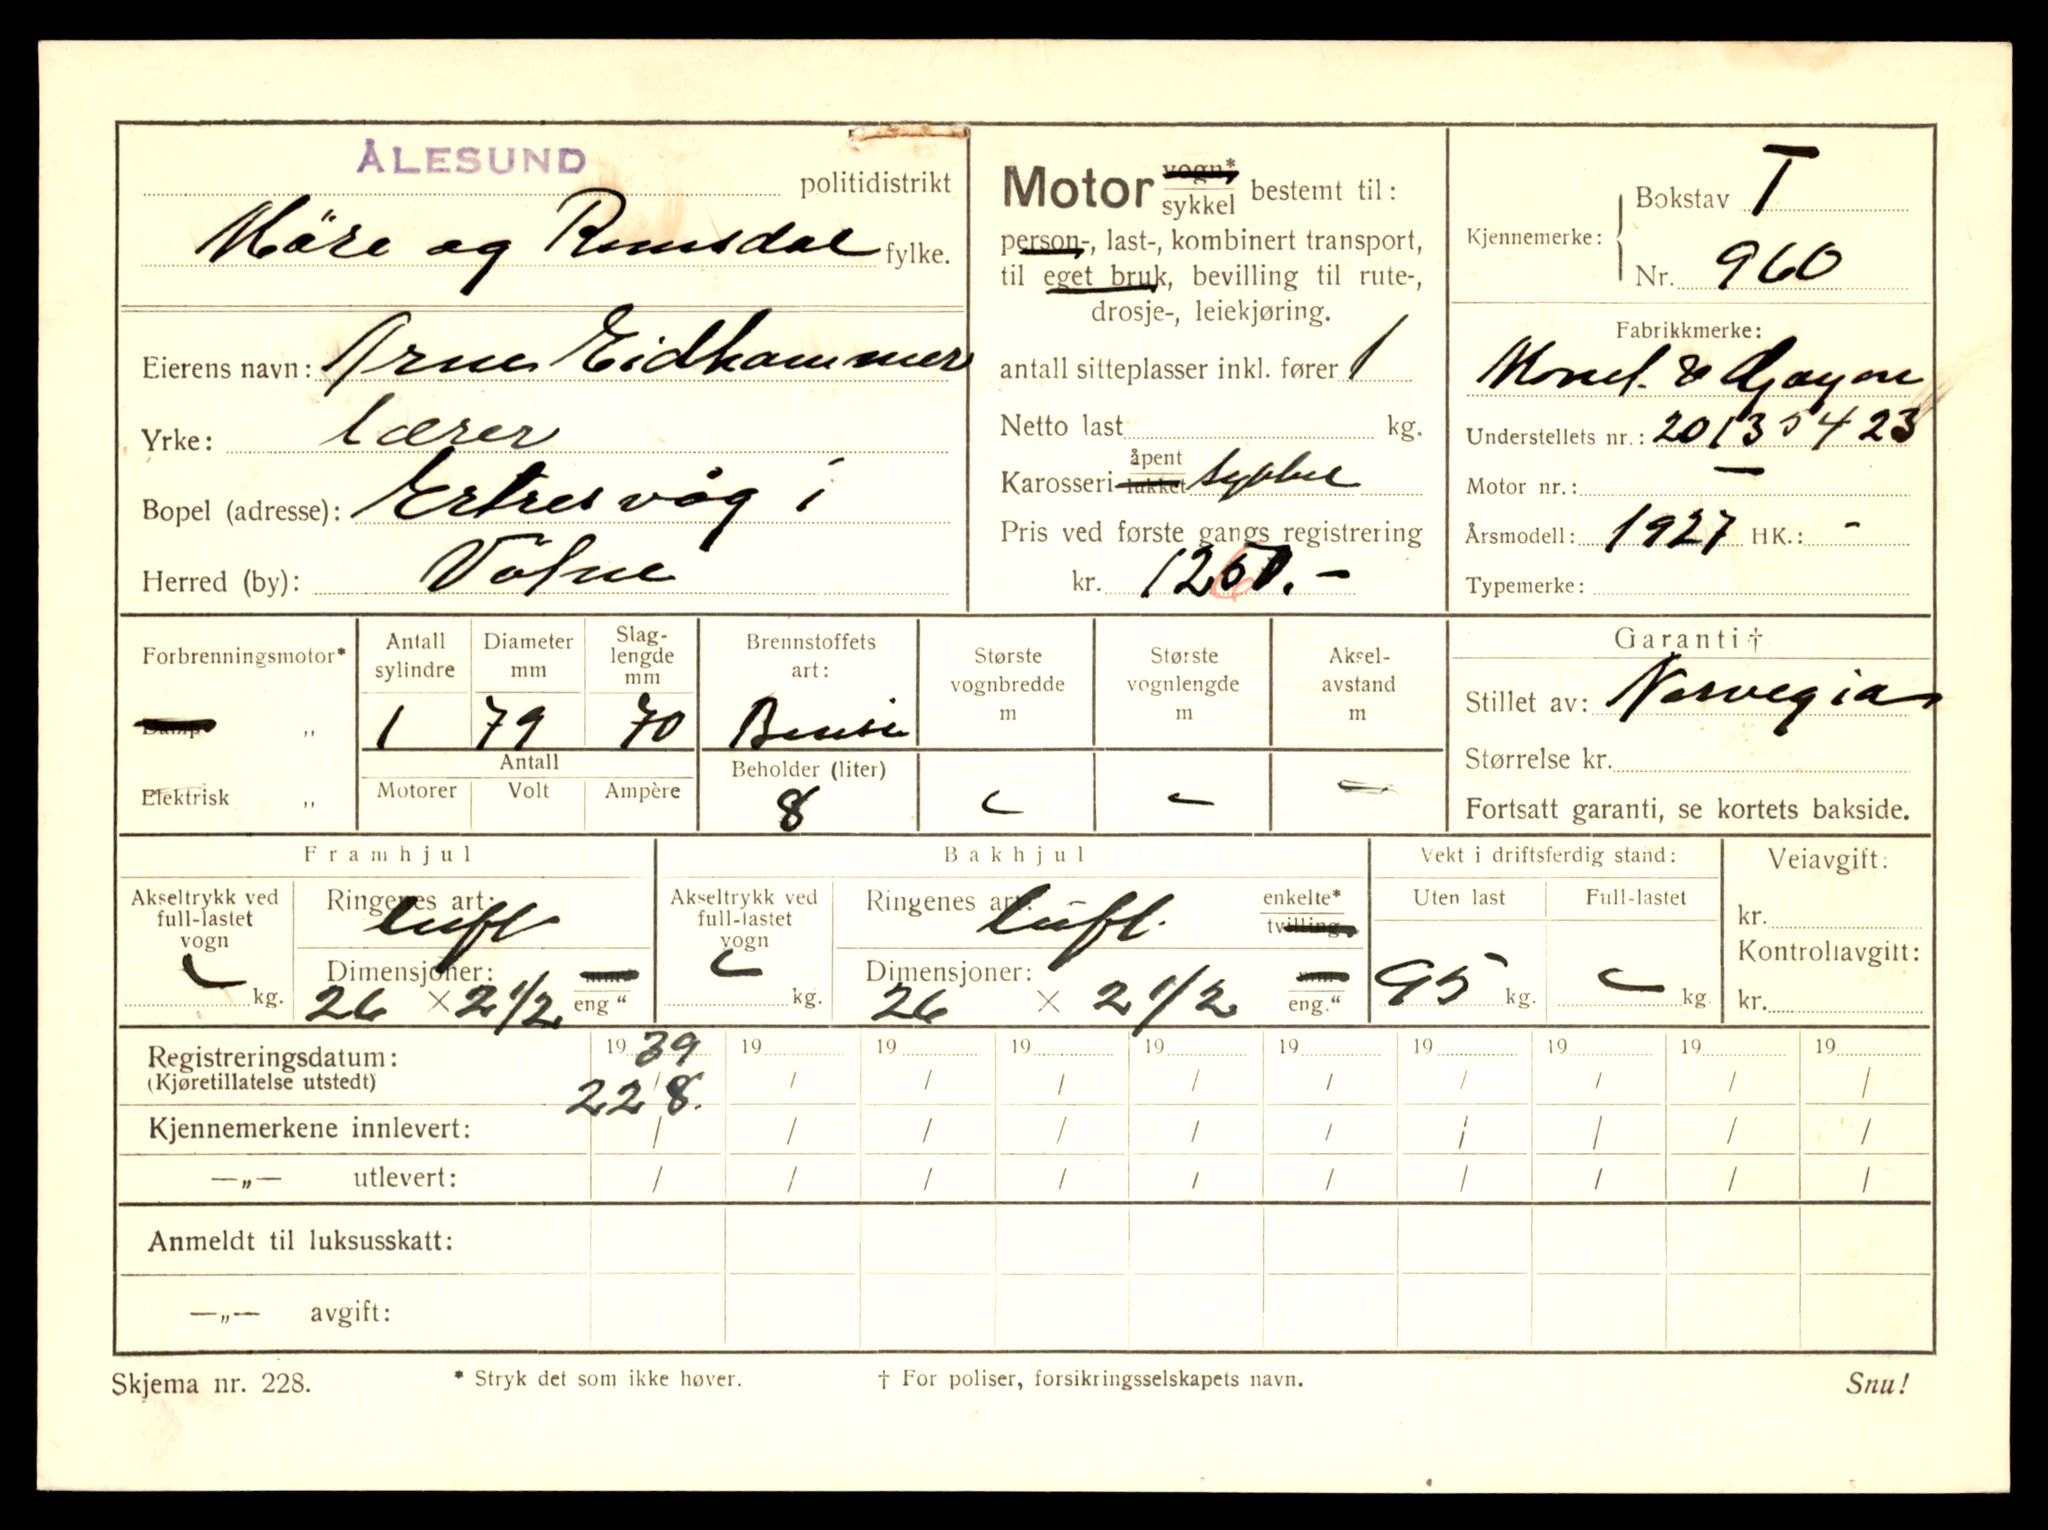 ÅLESUND politidistrikt
Möre og Romsdal fylke.
Eierens navn: Arne Eidhammer
Yrke: lærer
Bopel (adresse): Ertresvåg i
Herred (by): Vatne
Motor vogn* sykkel bestemt til:
person-, last-, kombinert transport,
til eget bruk, bevilling til rute-,
drosje-, leiekjøring.
antall sitteplasser inkl. fører 1
Netto last kg.
Karosseri åpent lukket sykkel
Pris ved første gangs registrering
kr. 1250.-
Kjennemerke: Bokstav T
Nr. 960
Fabrikkmerke:
Monet & Goyon
Understellets nr.: 20135423
Motor nr.: -
Årsmodell: 1927 HK.: -
Typemerke:
Forbrenningsmotor* Antall sylindre Diameter mm Slag-lengde mm Brennstoffets art: Største vognbredde m Største vognlengde m Aksel-avstand m
Damp „ 1 79 70 Bensin
Antall Beholder (liter)
Elektrisk „ Motorer Volt Ampère 8 - - -
Garanti †
Stillet av: Norvegia
Størrelse kr.
Fortsatt garanti, se kortets bakside.
Framhjul Bakhjul Vekt i driftsferdig stand: Veiavgift:
Akseltrykk ved full-lastet vogn - kg.
Ringenes art: luft
Dimensjoner: mm.
26 × 2 1/2 eng "
Akseltrykk ved full-lastet vogn - kg.
Ringenes art: luft. enkelte* tvilling.
Dimensjoner: mm.
26 × 2 1/2 eng."
Uten last 95 kg.
Full-lastet - kg.
kr.
Kontrollavgift:
kr.
Registreringsdatum: 1939 19 19 19 19 19 19 19 19 19
(Kjøretillatelse utstedt) 22/8. / / / / / / / / /
Kjennemerkene innlevert: / / / / / / / / / /
—„— utlevert: / / / / / / / / / /
Anmeldt til luksusskatt:
—„— avgift:
Skjema nr. 228. * Stryk det som ikke høver. † For poliser, forsikringsselskapets navn. Snu!